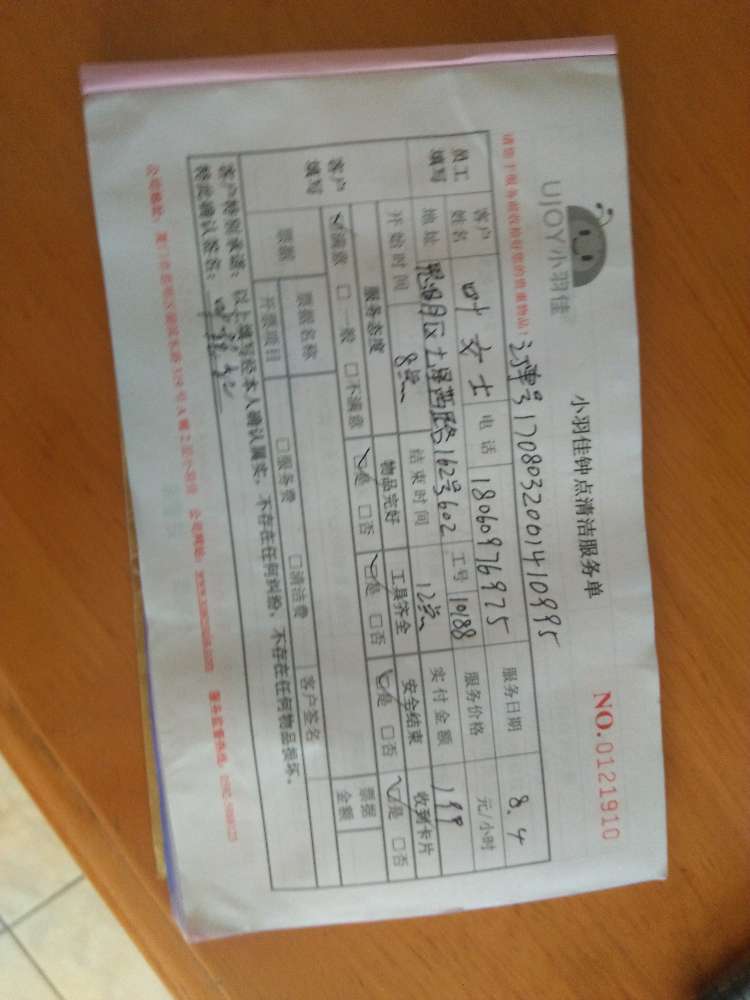 UJOY小羽佳
小羽佳钟点清洁服务单
NO.0121910
请您于服务前收拾好您的贵重物品！
订单号170803200141099 5
员工填写
客户姓名 叶女士 电话 18060976975 服务日期 8.4
地址 思明区 西路162号602 工号 10188 服务价格 元/小时
开始时间 8 结束时间 12 实付金额 199
客户填写
服务态度 物品完好 工具齐全 安全结束 收到卡片
☑满意 □一般 □不满意 ☑是 □否 ☑是 □否 ☑是 □否 ☑是 □否
票据 票据名称 客户签名 票据金额
开票项目 □服务费 □清洁费
客户特别承诺：以上填写经本人确认属实，不存在任何纠纷，不存在任何物品损坏。
特此确认签名：
公司地址：厦门市思明区 公司网址：www.xiaoyujia.com 服务监督热线：0592-